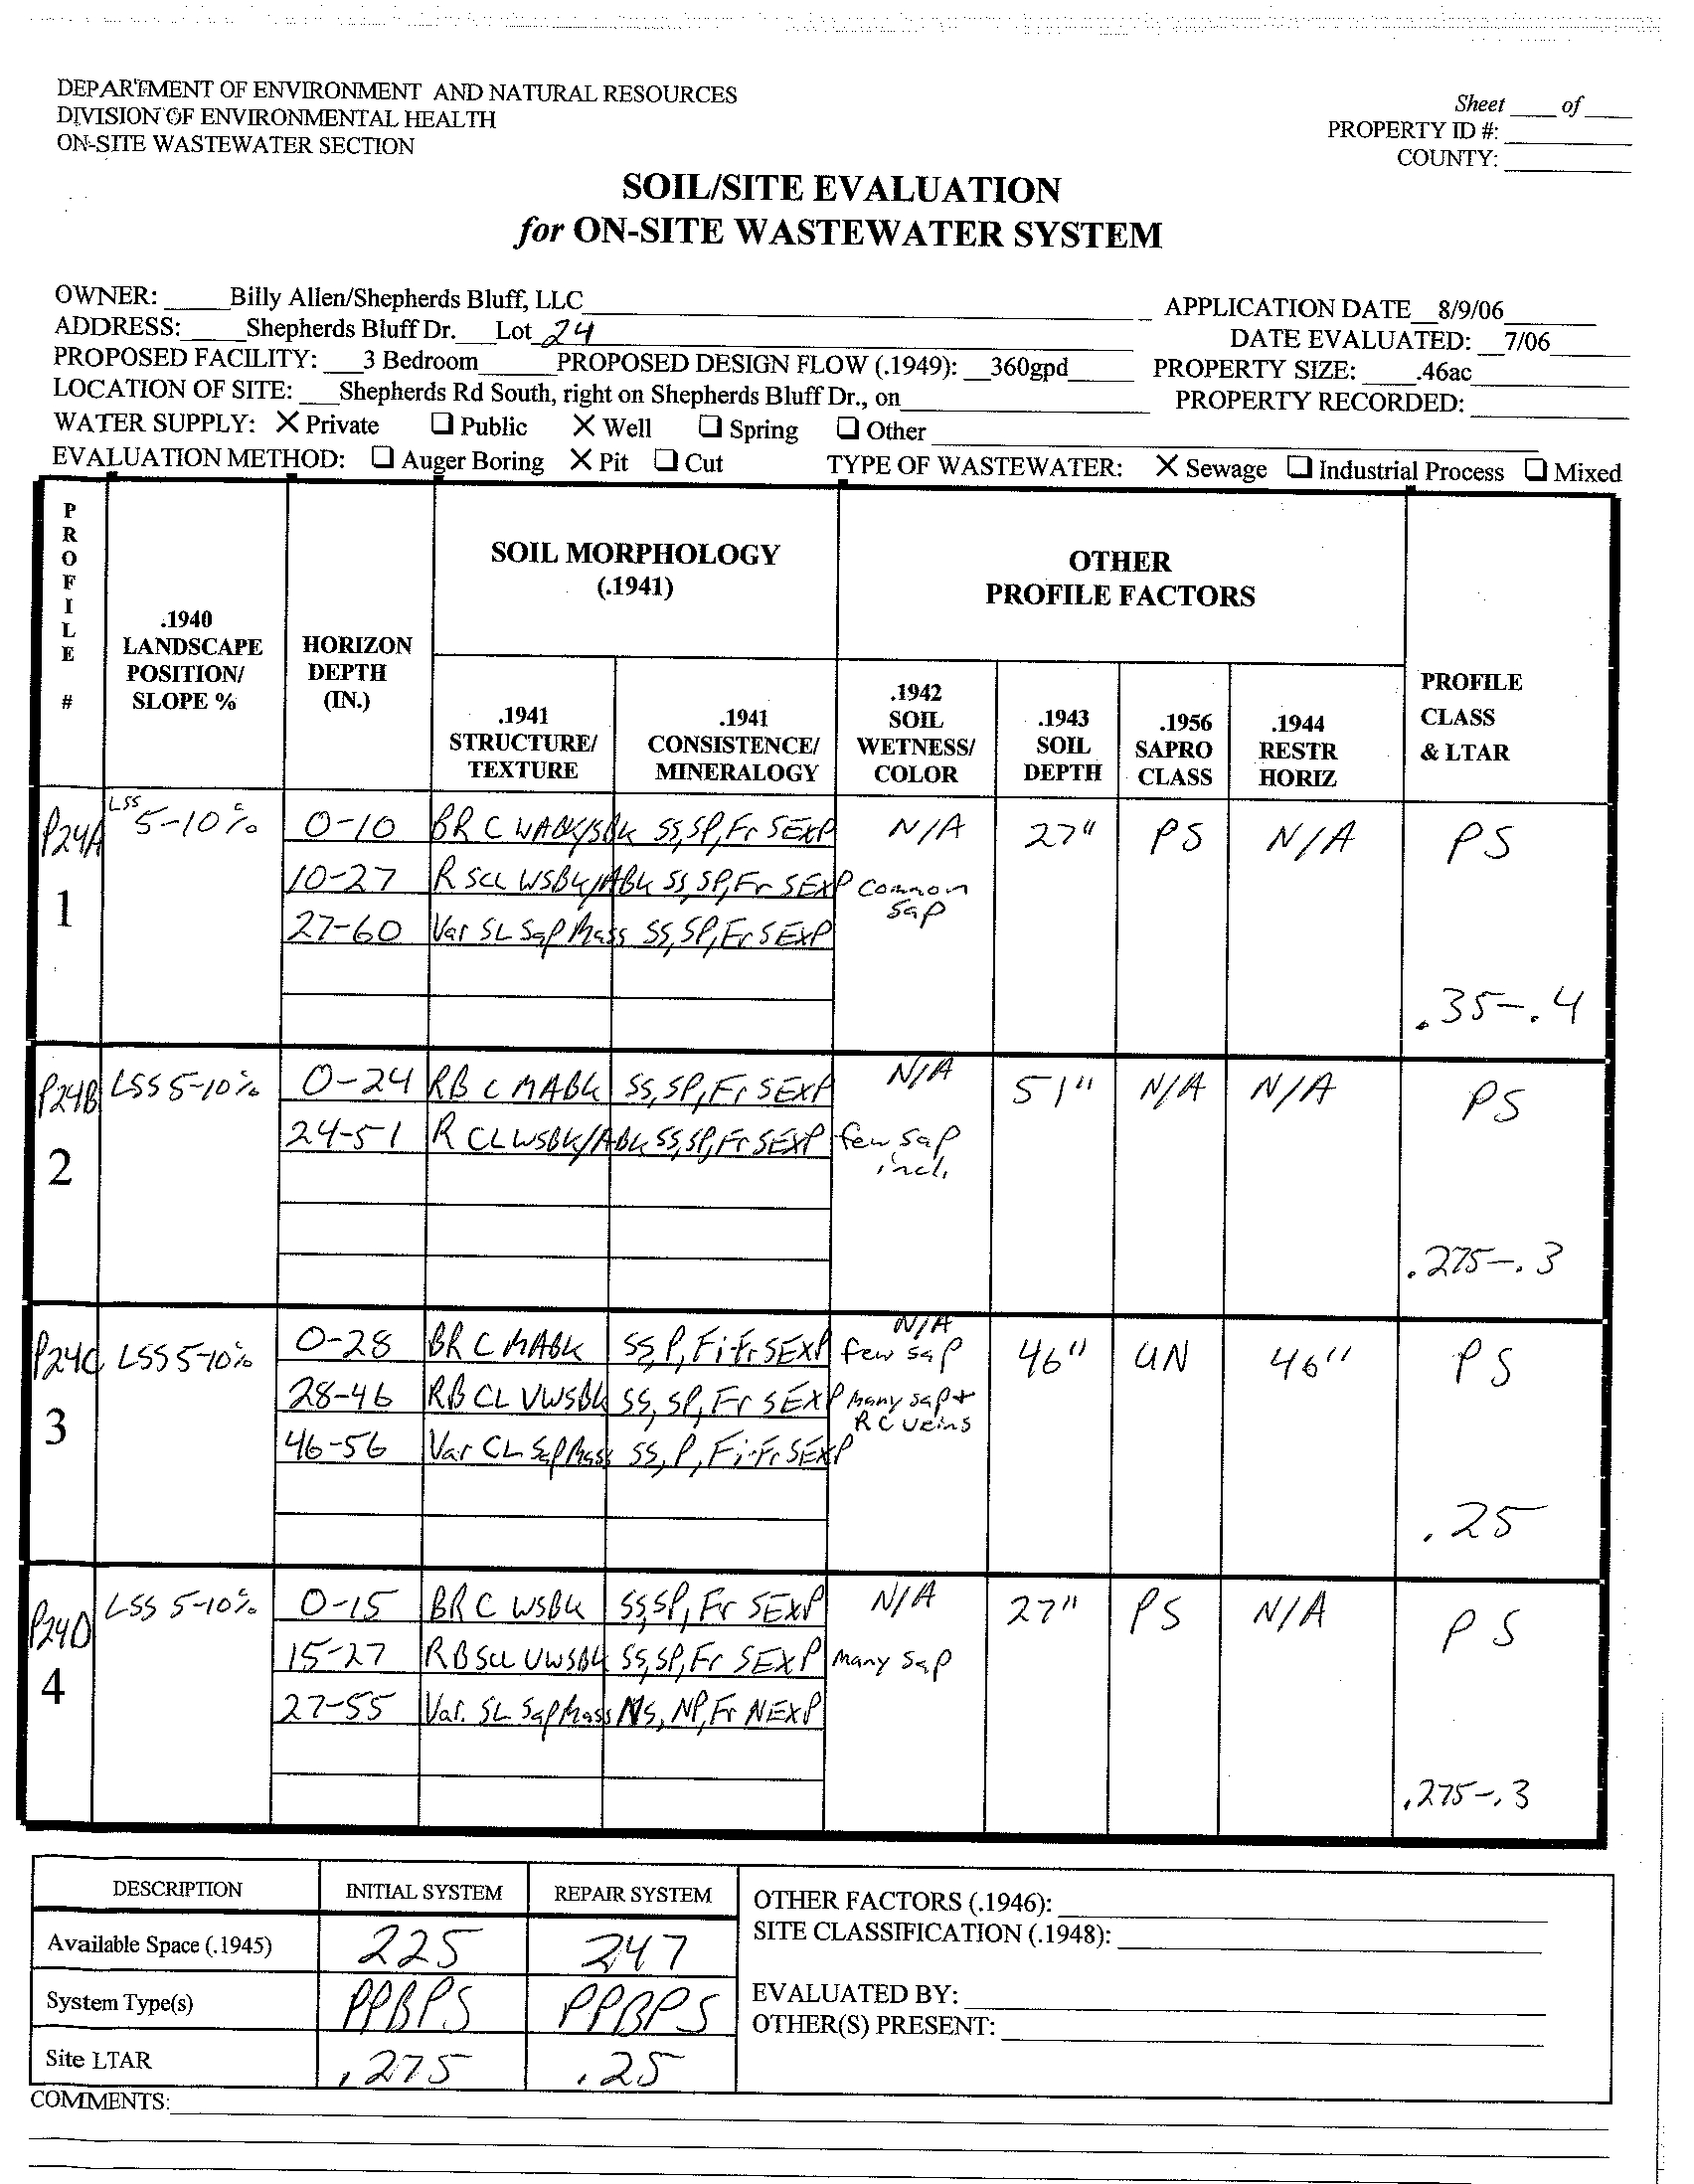 DEPARTMENT OF ENVIRONMENT AND NATURAL RESOURCES
DIVISION OF ENVIRONMENTAL HEALTH
ON-SITE WASTEWATER SECTION
Sheet ____ of ____
PROPERTY ID #:
COUNTY:
SOIL/SITE EVALUATION
for ON-SITE WASTEWATER SYSTEM
OWNER: Billy Allen/Shepherds Bluff, LLC
APPLICATION DATE 8/9/06
ADDRESS: Shepherds Bluff Dr. Lot 24
DATE EVALUATED: 7/06
PROPOSED FACILITY: 3 Bedroom PROPOSED DESIGN FLOW (.1949): 360gpd PROPERTY SIZE: .46ac
LOCATION OF SITE: Shepherds Rd South, right on Shepherds Bluff Dr., on PROPERTY RECORDED:
WATER SUPPLY: X Private ❑ Public X Well ❑ Spring ❑ Other
EVALUATION METHOD: ❑ Auger Boring X Pit ❑ Cut TYPE OF WASTEWATER: X Sewage ❑ Industrial Process ❑ Mixed
PROFILE #
.1940 LANDSCAPE POSITION/ SLOPE %
HORIZON DEPTH (IN.)
SOIL MORPHOLOGY (.1941)
.1941 STRUCTURE/ TEXTURE
.1941 CONSISTENCE/ MINERALOGY
OTHER PROFILE FACTORS
.1942 SOIL WETNESS/ COLOR
.1943 SOIL DEPTH
.1956 SAPRO CLASS
.1944 RESTR HORIZ
PROFILE CLASS & LTAR
P24A 1 LSS 5-10% 0-10 BR C WABK/SBK SS,SP,Fr SEXP N/A 27" PS N/A PS
10-27 R SCL WSBK/ABK SS,SP,Fr SEXP Common Sap
27-60 Var SL Sap Mass SS,SP,Fr SEXP
.35-.4
P24B 2 LSS 5-10% 0-24 RB C MABK SS,SP,Fr SEXP N/A 51" N/A N/A PS
24-51 R CL WSBK/ABK SS,SP,Fr SEXP few sap incl.
.275-.3
P24C 3 LSS 5-10% 0-28 BR C MABK SS,P,Fi-Fr SEXP N/A few sap 46" UN 46" PS
28-46 RB CL VWSBK SS, SP, Fr SEXP Many sap + RC veins
46-56 Var CL Sap Mass SS, P, Fi-Fr SEXP
.25
P24D 4 LSS 5-10% 0-15 BR C WSBK SS,SP,Fr SEXP N/A 27" PS N/A PS
15-27 RB SCL VWSBK SS,SP,Fr SEXP Many Sap
27-55 Var. SL Sap Mass NS, NP, Fr NEXP
.275-.3
DESCRIPTION INITIAL SYSTEM REPAIR SYSTEM
Available Space (.1945) 225 247
System Type(s) PPBPS PPBPS
Site LTAR .275 .25
OTHER FACTORS (.1946):
SITE CLASSIFICATION (.1948):
EVALUATED BY:
OTHER(S) PRESENT:
COMMENTS: